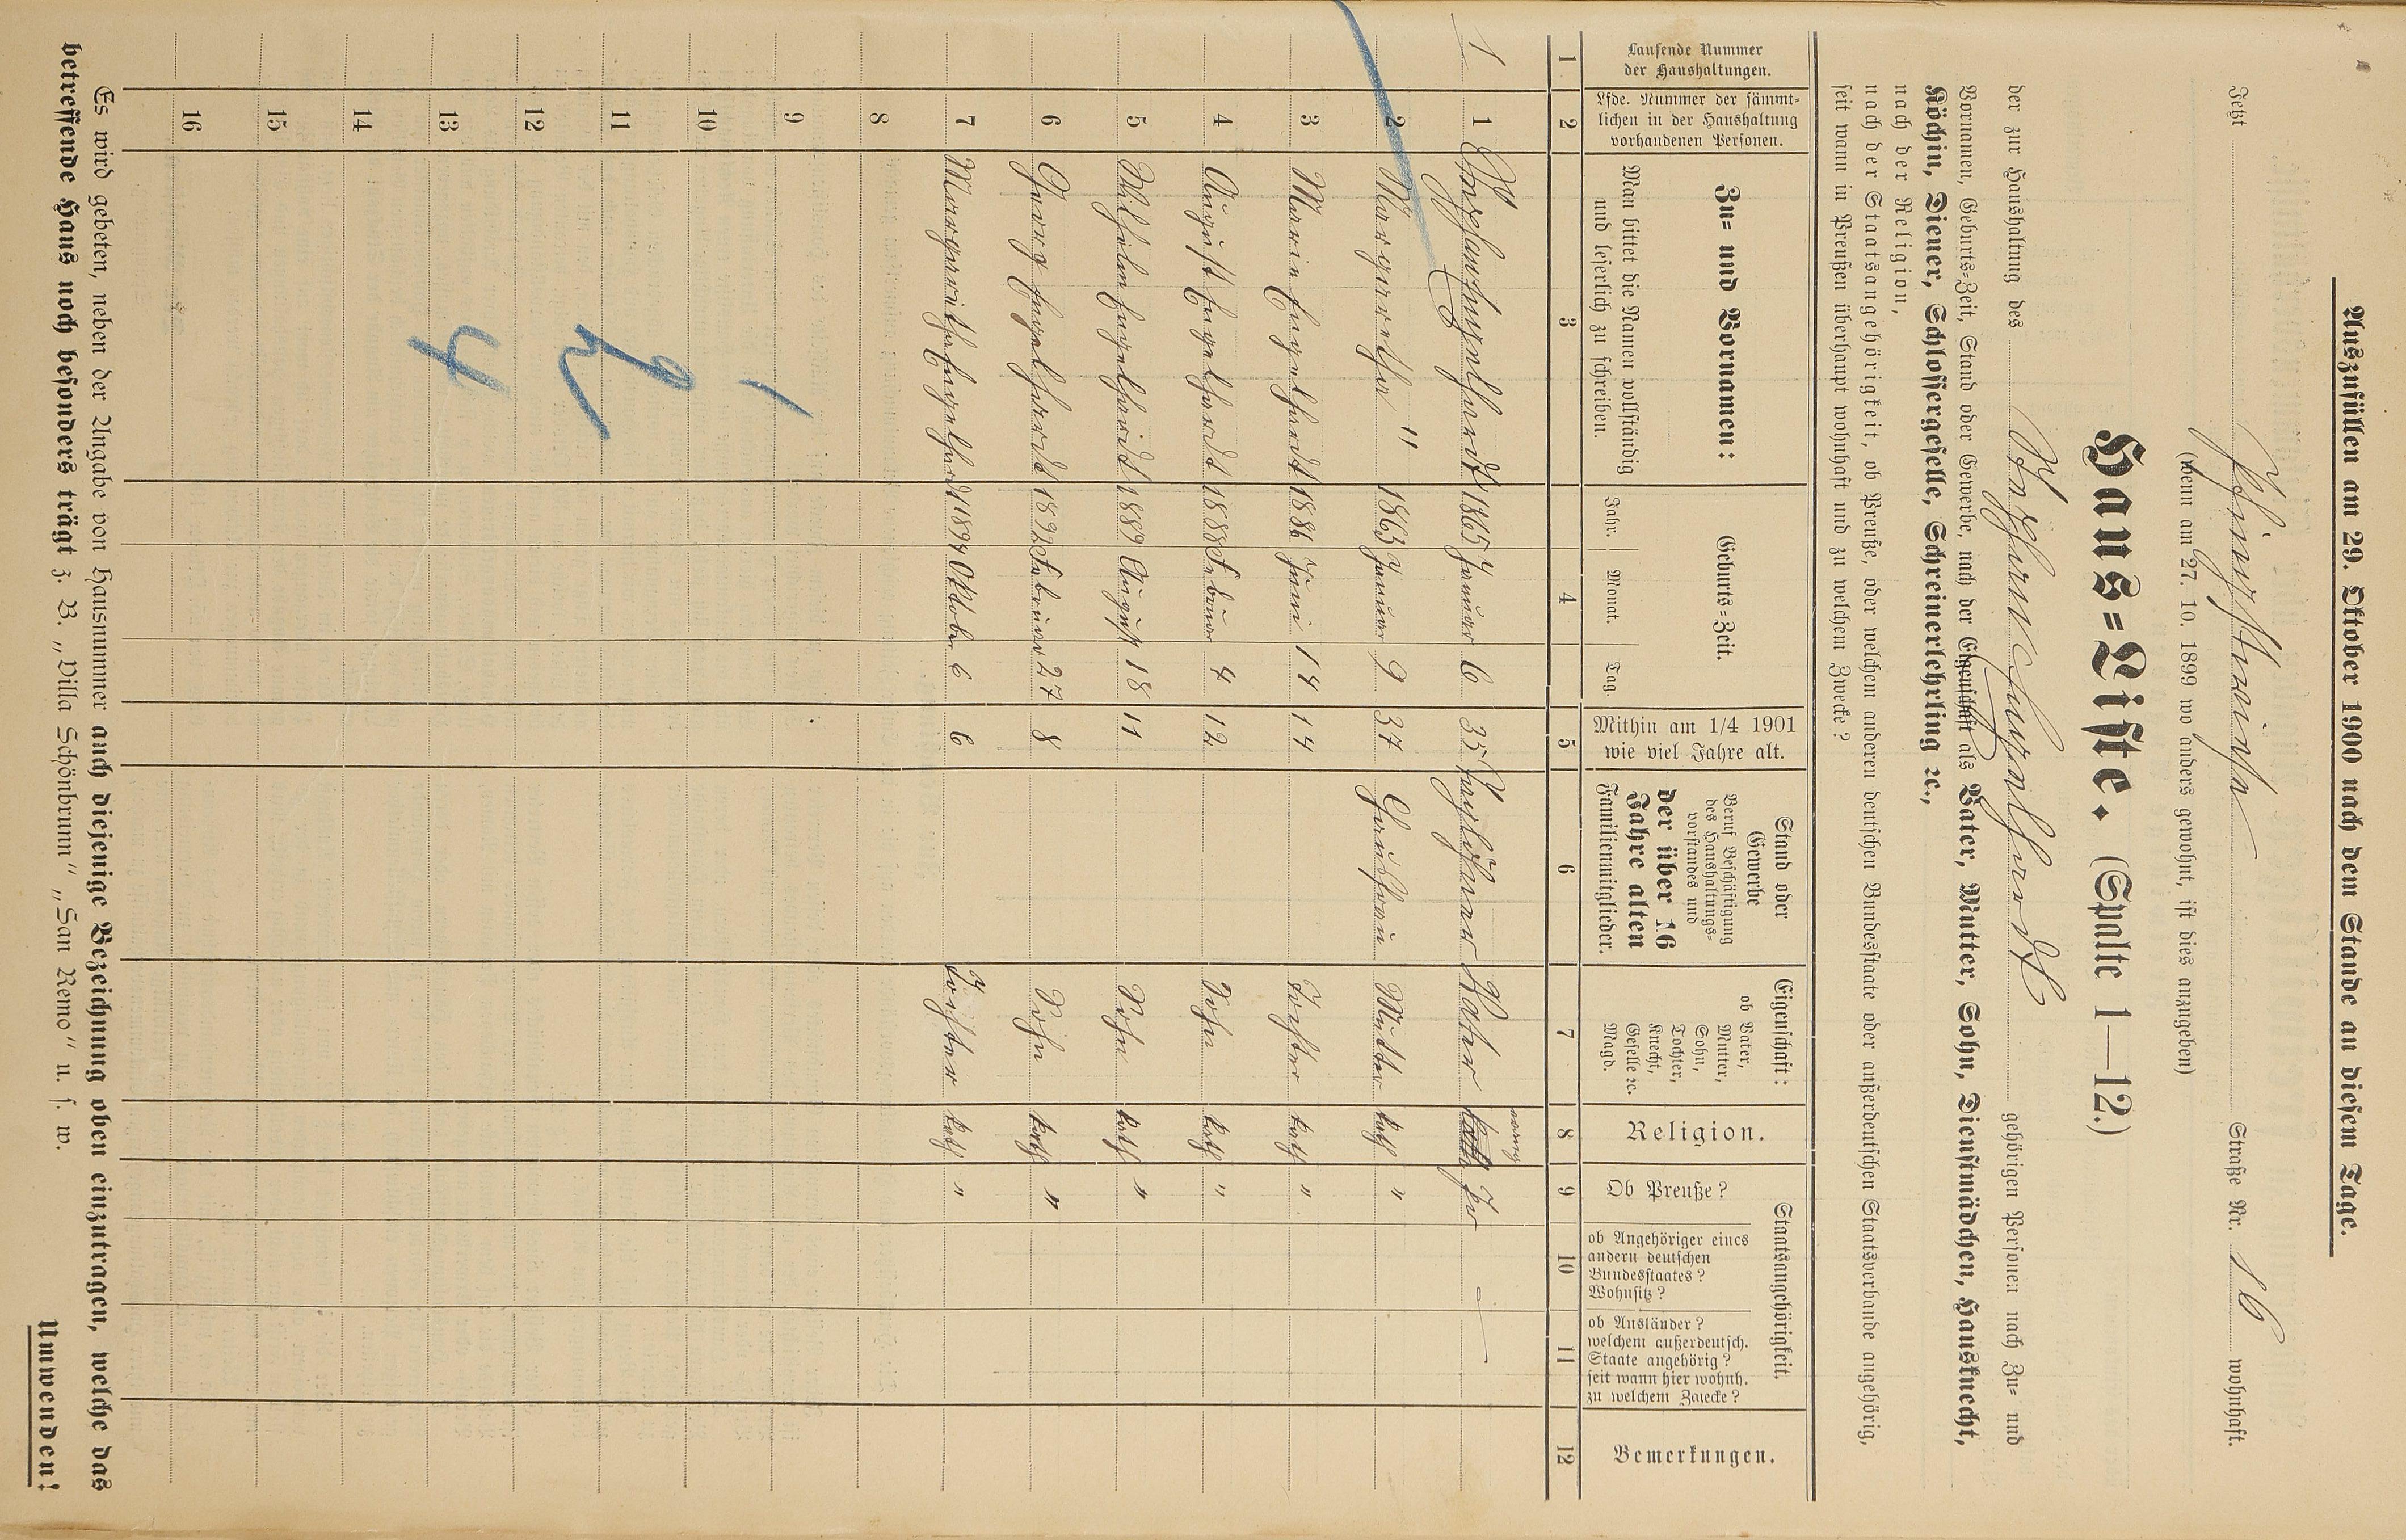 Auszufüllen am 29. Oktober 1900 nach dem Stande an diesem Tage.
Jetzt Straße Nr. 16 wohnhaft.
(wenn am 27. 10. 1899 wo anders gewohnt, ist dies anzugeben)
Haus=Liste. (Spalte 1—12.)
der zur Haushaltung des Engelhardt gehörigen Personen nach Zu= und
Vornamen, Geburts=Zeit, Stand oder Gewerbe, nach der Eigenschaft als Vater, Mutter, Sohn, Dienstmädchen, Hausknecht,
Köchin, Diener, Schlossergeselle, Schreinerlehrling ꝛc.,
nach der Religion,
nach der Staatsangehörigkeit, ob Preuße, oder welchem anderen deutschen Bundesstaate oder außerdeutschen Staatsverbande angehörig,
seit wann in Preußen überhaupt wohnhaft und zu welchem Zwecke?
Laufende Nummer der Haushaltungen.
Lfde. Nummer der sämmtlichen in der Haushaltung vorhandenen Personen.
Zu= und Vornamen:
Man bittet die Namen vollständig und leserlich zu schreiben.
Geburts=Zeit.
Jahr. Monat. Tag.
Mithin am 1/4 1901 wie viel Jahre alt.
Stand oder Gewerbe
Beruf Beschäftigung des Haushaltungs=vorstandes und
der über 16 Jahre alten Familienmitglieder.
Eigenschaft:
ob Vater, Mutter, Sohn, Tochter, Knecht, Geselle ꝛc. Magd.
Religion.
Staatsangehörigkeit.
Ob Preuße?
ob Angehöriger eines andern deutschen Bundesstaates? Wohnsitz?
ob Ausländer? welchem außerdeutsch. Staate angehörig? seit wann hier wohnh. zu welchem Zwecke?
Bemerkungen.
1 2 3 4 5 6 7 8 9 10 11 12
1 1 Engelhardt 1865 Januar 6 35 Vater Ja
2 Margaretha " 1863 Januar 9 37 Hausfrau Mutter kath "
3 Maria Engelhardt 1886 Juni 14 14 Tochter kath "
4 August Engelhardt 1888 Februar 4 12 Sohn kath "
5 Wilhelm Engelhardt 1889 August 18 11 Sohn kath "
6 Georg Engelhardt 1892 Februar 27 8 Sohn kath "
7 Margaretha Engelhardt 1894 Oktober 6 6 Tochter kath "
8
9
10
11
12
13
14
15
16
4
Es wird gebeten, neben der Angabe von Hausnummer auch diejenige Bezeichnung oben einzutragen, welche das
betreffende Haus noch besonders trägt z. B. „Villa Schönbrunn" „San Remo" u. s. w.
Umwenden!